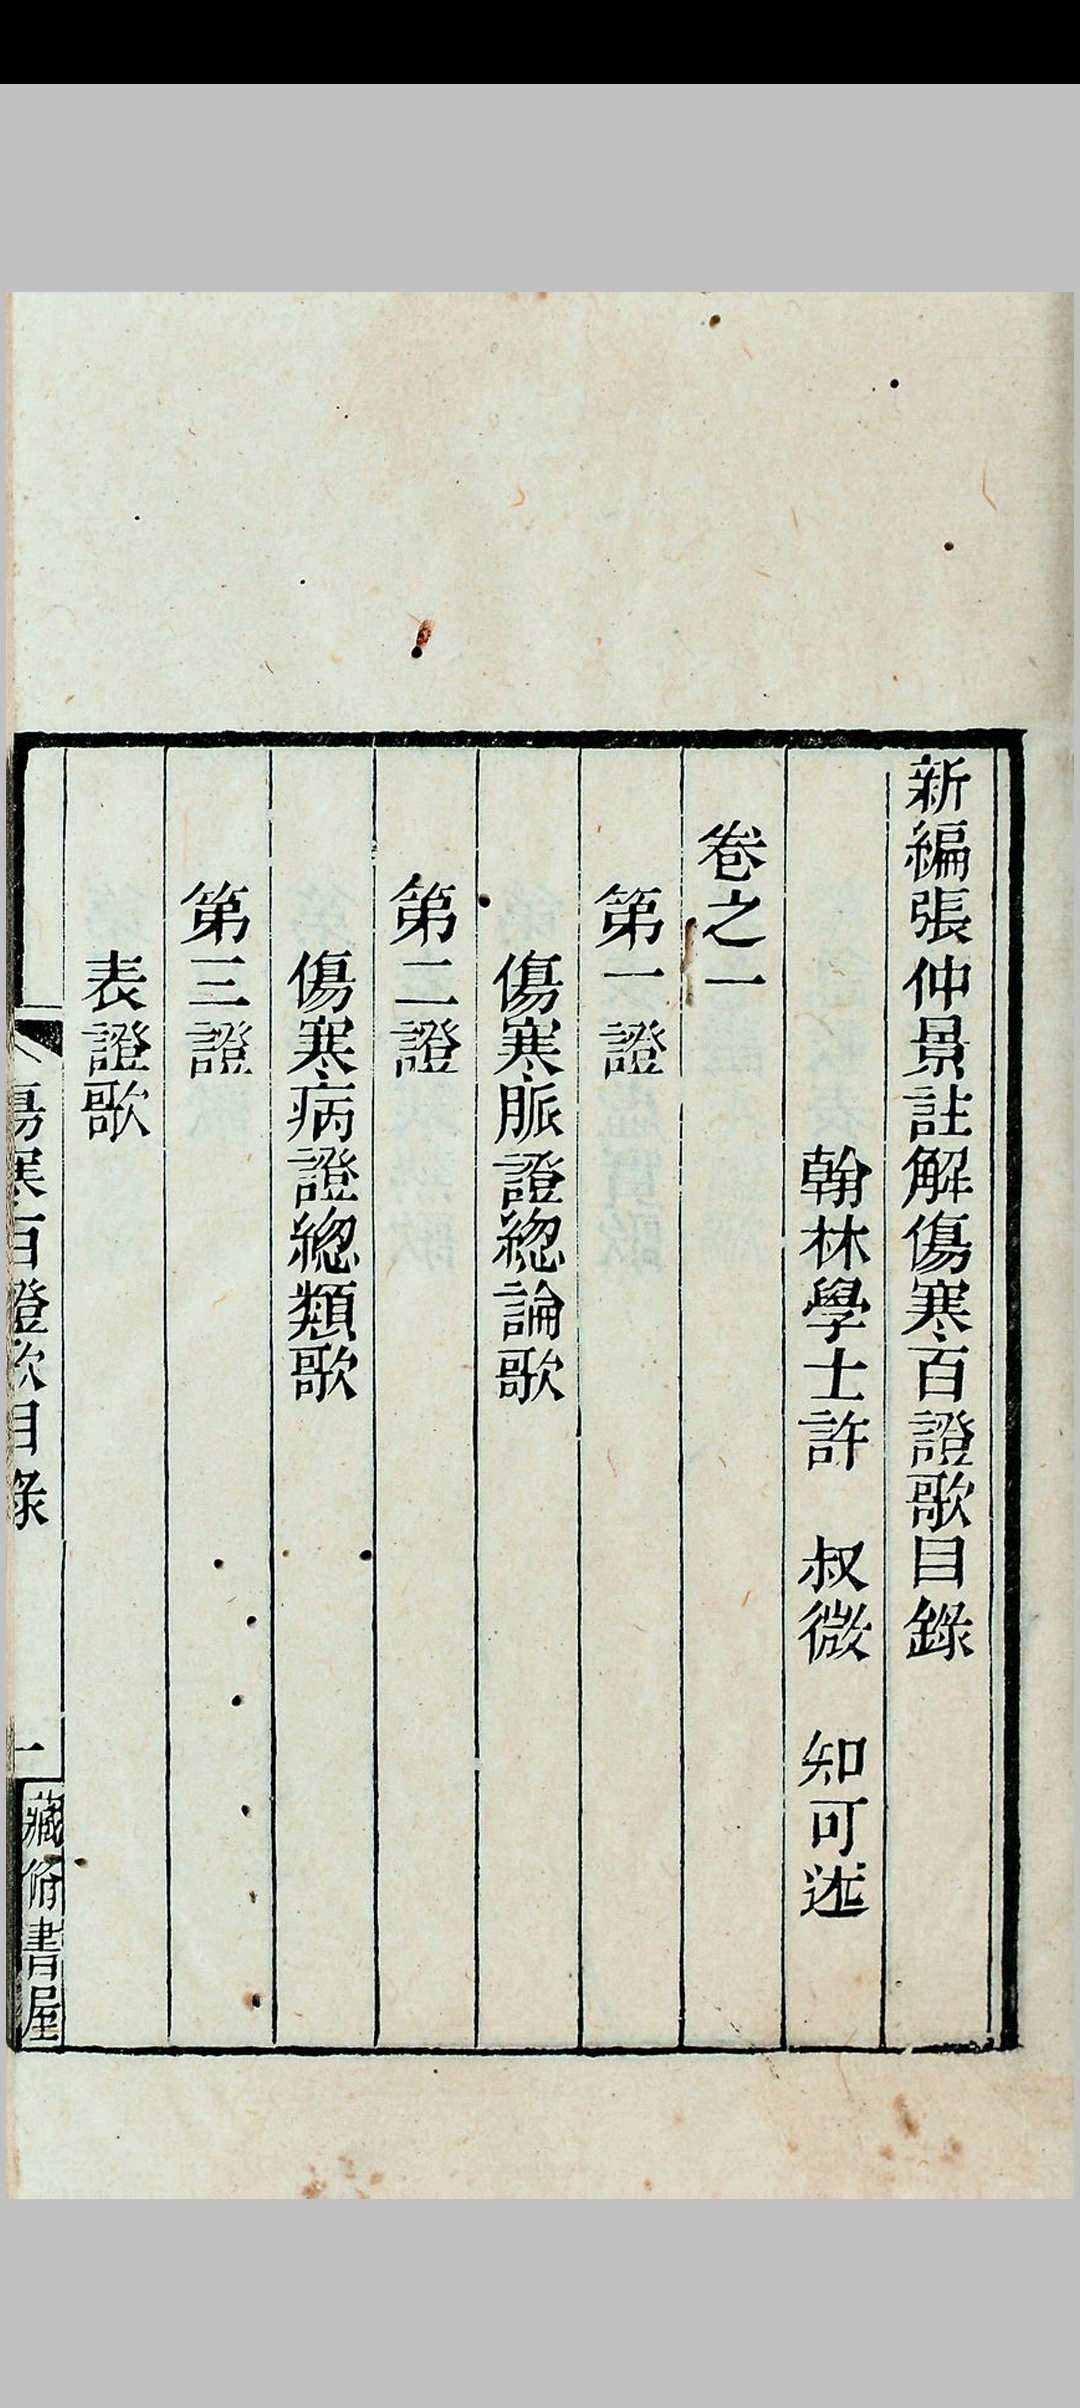 新編張仲景註解傷寒百證歌目錄
翰林學士許　叔微　知可述
卷之一
第一證
傷寒脈證總論歌
第二證
傷寒病證總類歌
第三證
表證歌
傷寒百證歌目錄
一
藏脩書屋